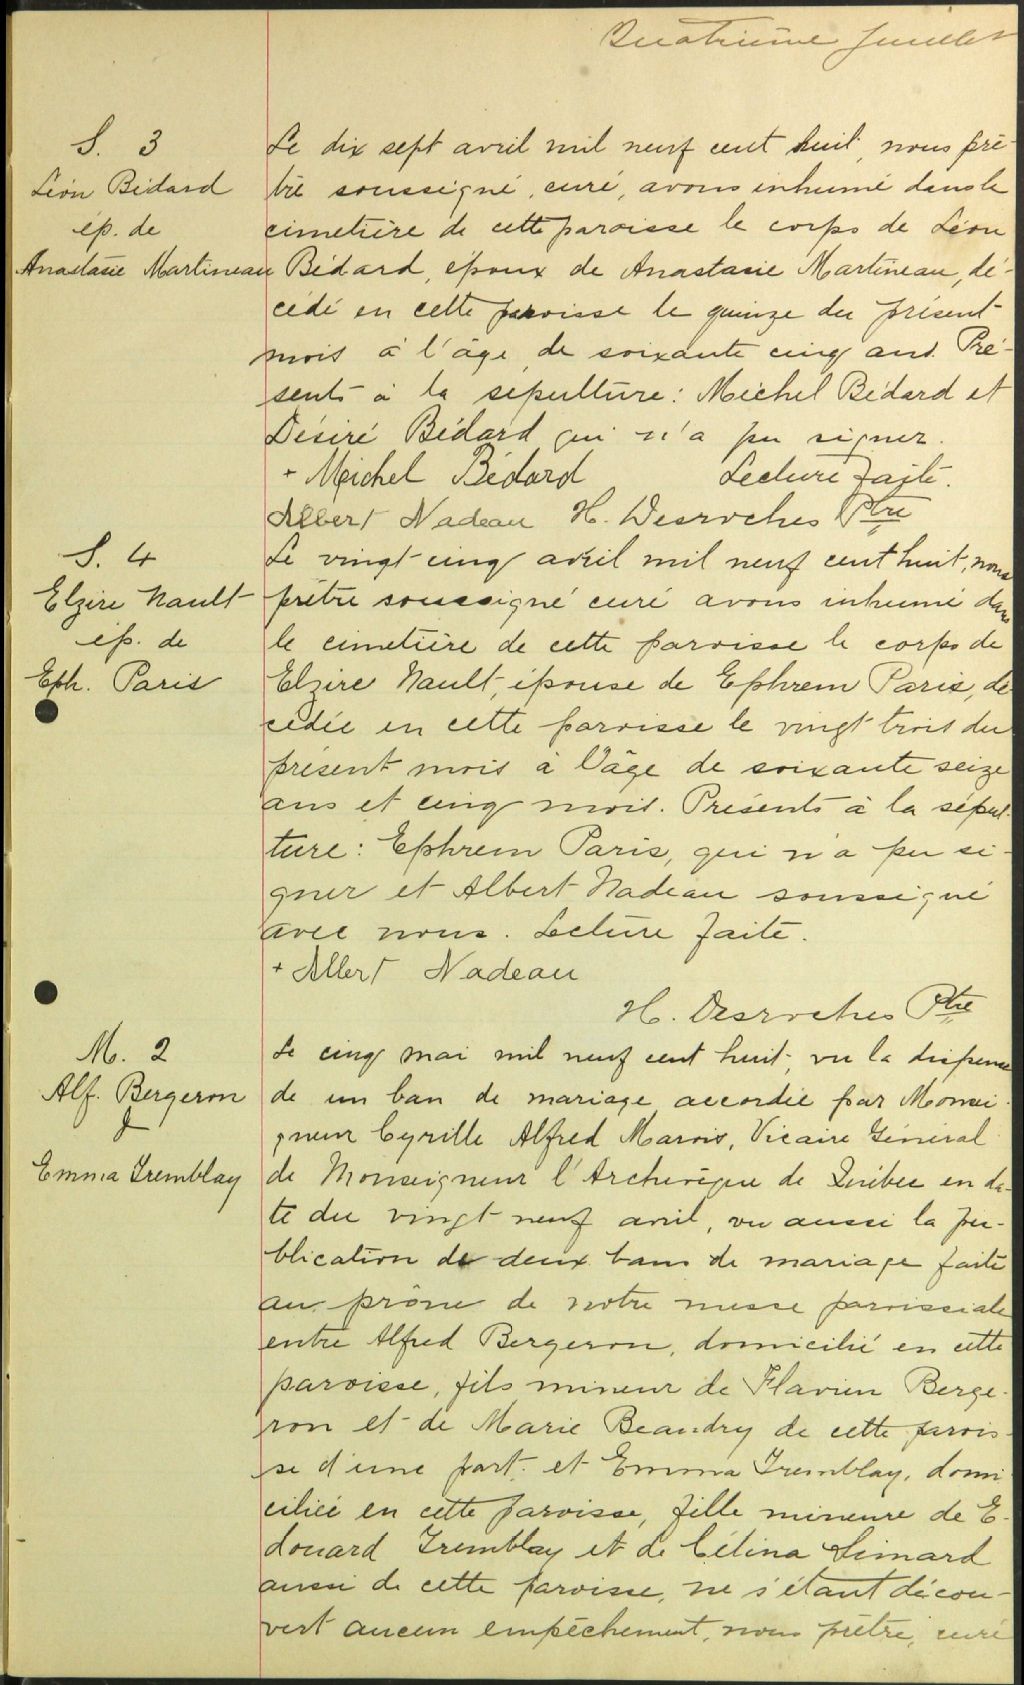 Quatrième feuillet
S. 3
Léon Bédard
ép. de
Anastasie Martineau
Le dix sept avril mil neuf cent huit, nous prê-
tre soussigné, curé, avons inhumé dans le
cimetière de cette paroisse le corps de Léon
Bédard, époux de Anastasie Martineau, dé-
cédé en cette paroisse le quinze du présent
mois à l'âge de soixante cinq ans. Pré-
sents à la sépulture: Michel Bédard et
Désiré Bédard qui n'a pu signer.
+ Michel Bédard Lecture faite.
Albert Nadeau H. Desroches Ptre
S. 4
Elzire Nault
ép. de
Eph. Paris
Le vingt cinq avril mil neuf cent huit, nous
prêtre soussigné curé avons inhumé dans
le cimetière de cette paroisse le corps de
Elzire Nault, épouse de Ephrem Paris, dé-
cédée en cette paroisse le vingt trois du
présent mois à l'âge de soixante seize
ans et cinq mois. Présents à la sépul-
ture: Ephrem Paris, qui n'a pu si-
gner et Albert Nadeau soussigné
avec nous. Lecture faite.
+ Albert Nadeau
H. Desroches Ptre
M. 2
Alf. Bergeron
&
Emma Tremblay
Le cinq mai mil neuf cent huit, vu la dispense
de un ban de mariage accordée par Monsei-
gneur Cyrille Alfred Marois, Vicaire Général
de Monseigneur l'Archevêque de Québec en da-
te du vingt neuf avril, vu aussi la pu-
blication de deux bans de mariage faite
au prône de notre messe paroissiale
entre Alfred Bergeron, domicilié en cette
paroisse, fils mineur de Flavien Berge-
ron et de Marie Beaudry de cette parois-
se d'une part; et Emma Tremblay, domi-
ciliée en cette paroisse, fille mineure de E-
douard Tremblay et de Célina Simard
aussi de cette paroisse, ne s'étant décou-
vert aucun empêchement, nous prêtre, curé